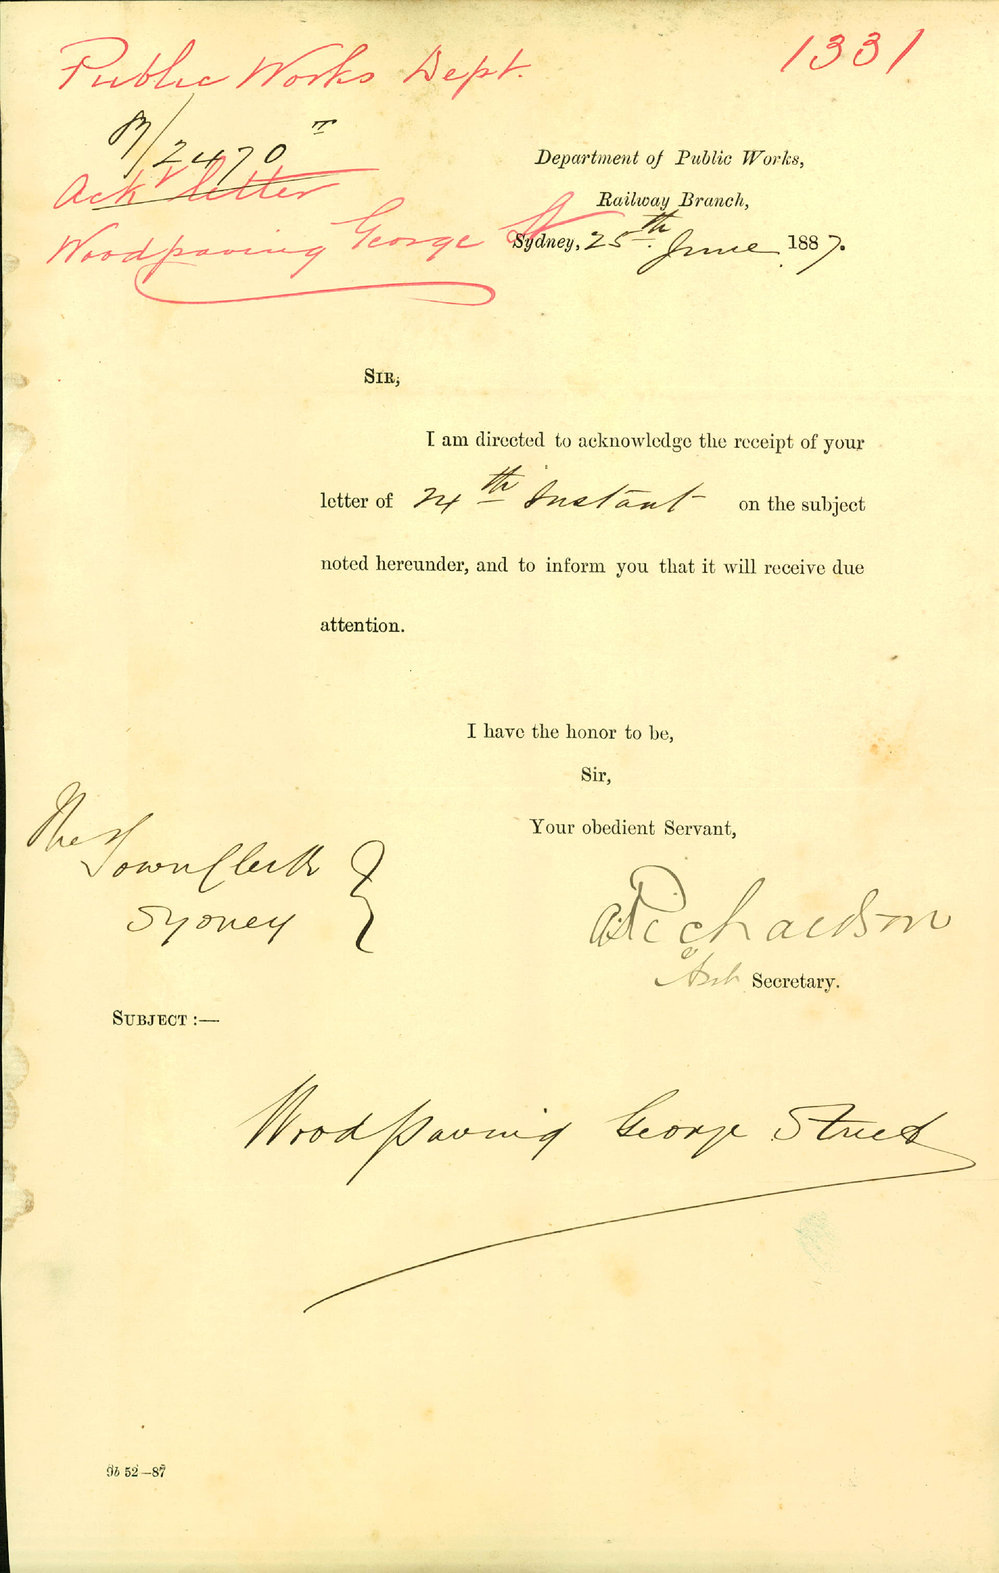 Public Works Dept.
1331
87/2470
Ackr letter
Woodpaving George St
Department of Public Works,
Railway Branch,
Sydney, 25th June 1887.
SIR,
I am directed to acknowledge the receipt of your
letter of 24th Instant on the subject
noted hereunder, and to inform you that it will receive due
attention.
I have the honor to be,
Sir,
Your obedient Servant,
The Town Clerk
Sydney
Richardson
Secretary.
SUBJECT :—
Woodpaving George Street
9b 52—87